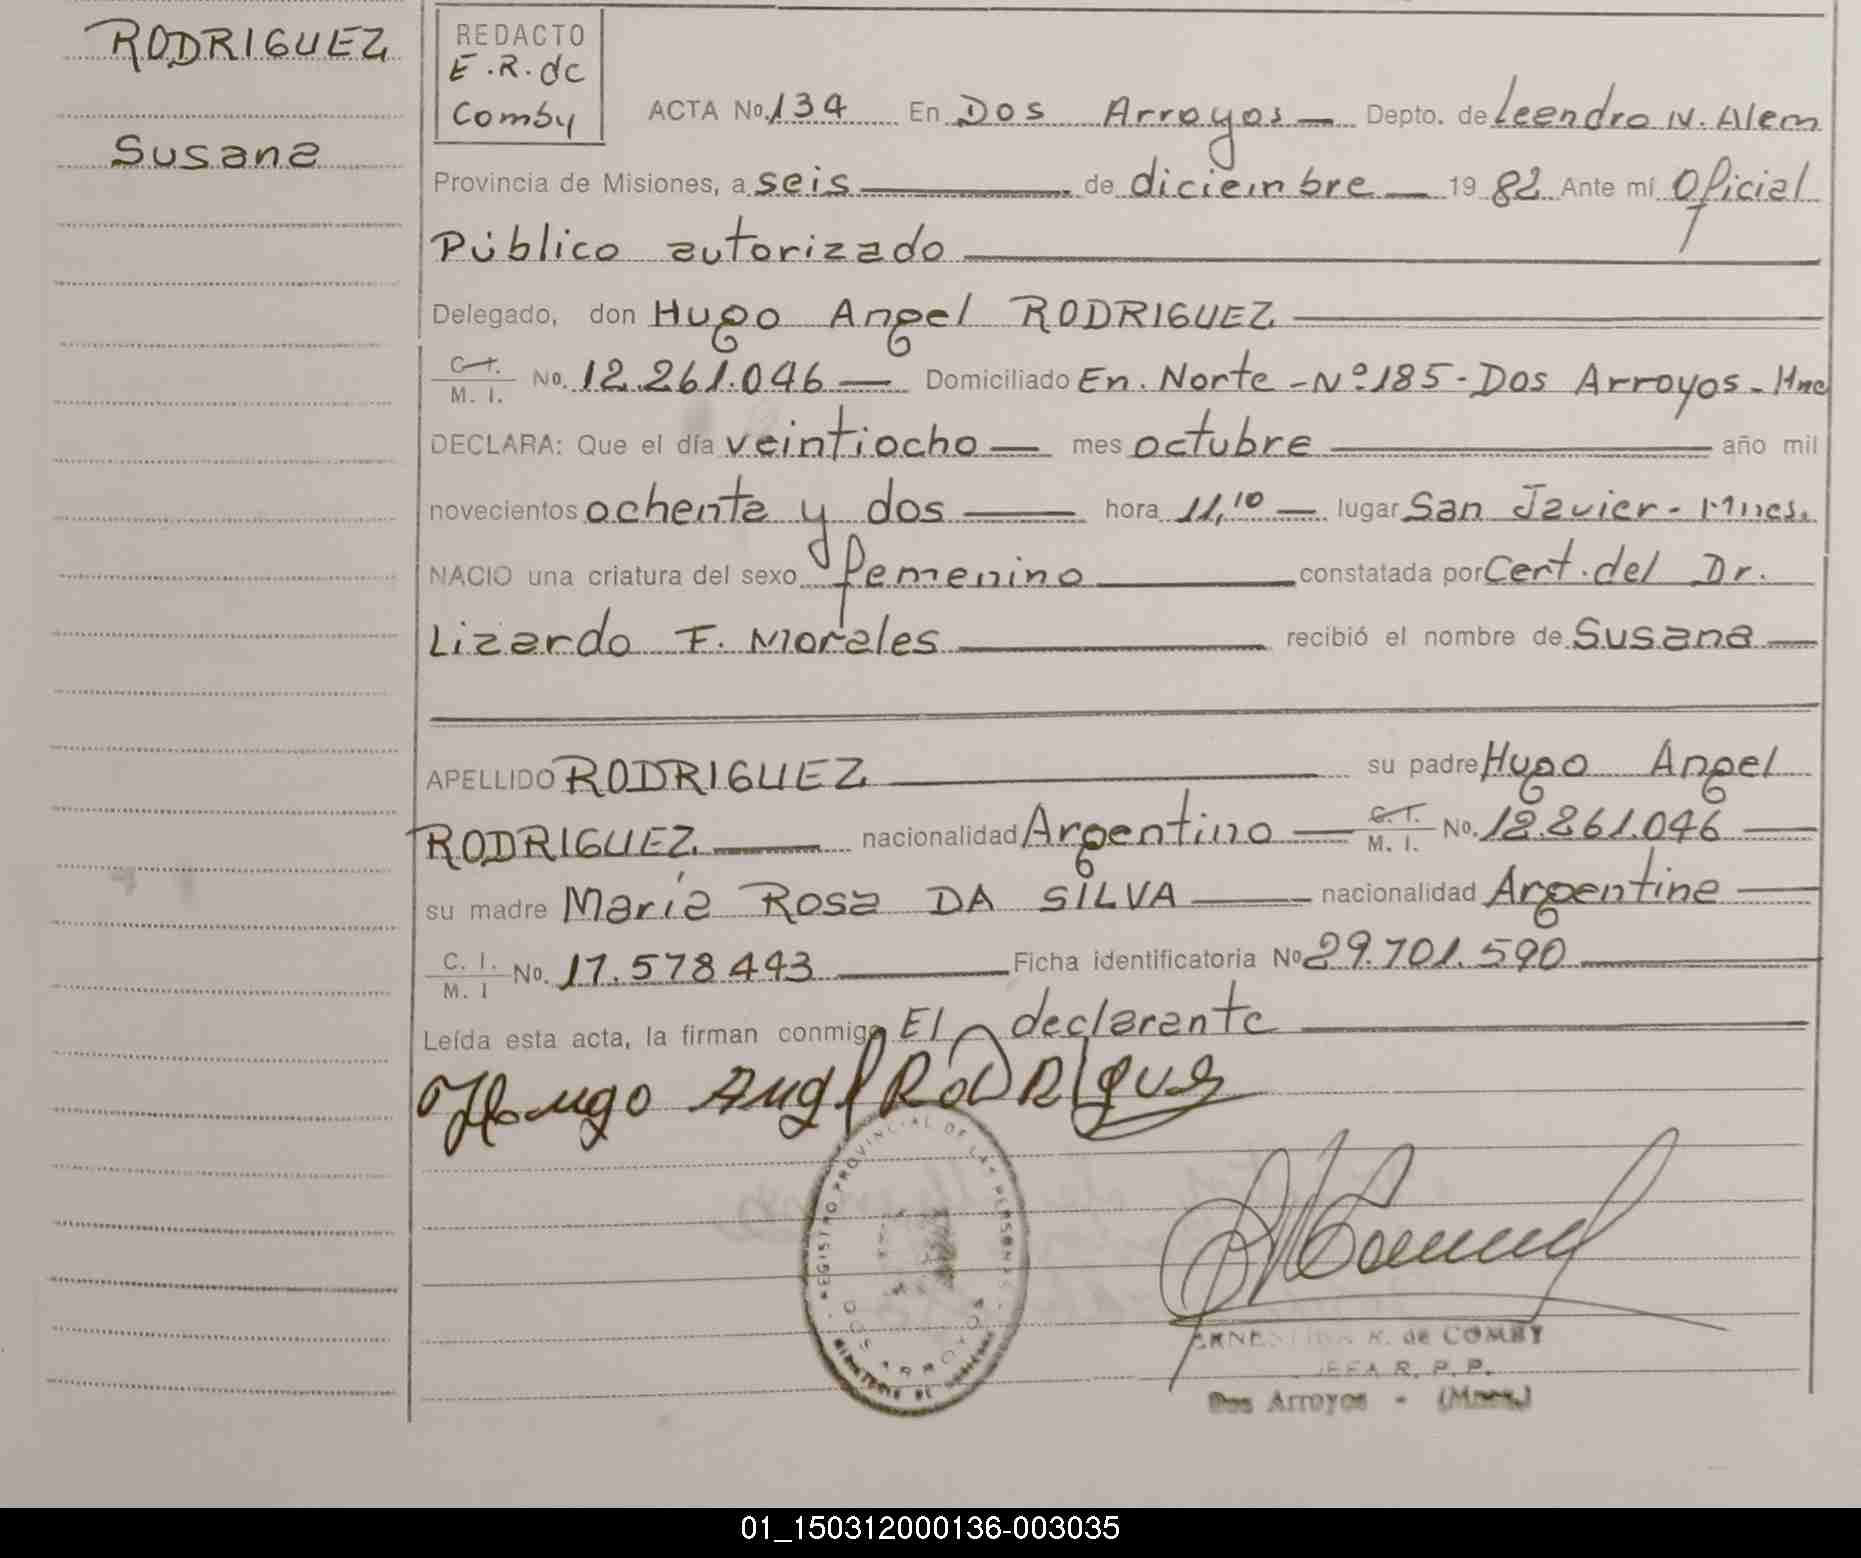 RODRIGUEZ
Susana
REDACTO
E.R. de
Comby
ACTA No. 134 En Dos Arroyos — Depto. de Leandro N. Alem
Provincia de Misiones, a seis — de diciembre — 19 82 Ante mí Oficial
Público autorizado —
Delegado, don Hugo Angel RODRIGUEZ —
C. I. / M. I. No. 12.261.046 — Domiciliado En. Norte - Nº 185 - Dos Arroyos -
DECLARA: Que el día veintiocho — mes octubre — año mil
novecientos ochenta y dos — hora 11,10 — lugar San Javier - Mnes.
NACIO una criatura del sexo femenino — constatada por Cert. del Dr.
Lizardo F. Morales — recibió el nombre de Susana —
APELLIDO RODRIGUEZ — su padre Hugo Angel
RODRIGUEZ — nacionalidad Argentino — C. I. / M. I. No. 12.261.046 —
su madre María Rosa DA SILVA — nacionalidad Argentina —
C. I. / M. I No. 17.578.443 — Ficha identificatoria No 29.701.590 —
Leída esta acta, la firman conmigo El declarante —
REGISTRO PROVINCIAL DE LAS PERSONAS
DOS ARROYOS
MINISTERIO DE GOBIERNO
R. de COMBY
JEFA R. P. P.
Dos Arroyos - (Mnes.)
01_150312000136-003035